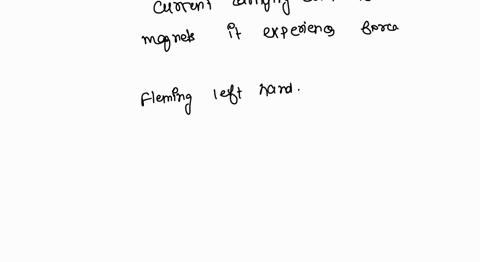 Current carrying
magnets it experiences force
Fleming left hand.